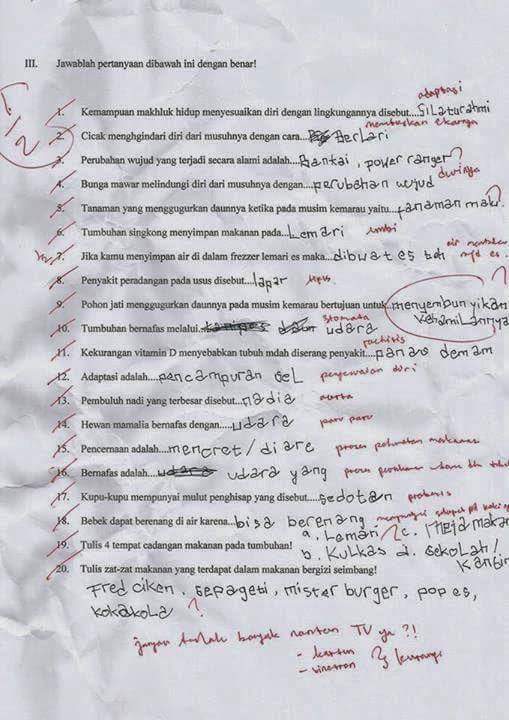 III. Jawablah pertanyaan dibawah ini dengan benar!
adaptasi
1. Kemampuan makhluk hidup menyesuaikan diri dengan lingkungannya disebut....Silaturahmi
memutuskan ekornya
2. Cicak menghgindari diri dari musuhnya dengan cara... Berlari
3. Perubahan wujud yang terjadi secara alami adalah....Bantai, power ranger?
durinya
4. Bunga mawar melindungi diri dari musuhnya dengan....perubahan wujud
5. Tanaman yang menggugurkan daunnya ketika pada musim kemarau yaitu....tanaman mak?
6. Tumbuhan singkong menyimpan makanan pada....Lemari umbi
air membeku
7. Jika kamu menyimpan air di dalam frezzer lemari es maka...dibuat es teh mjd es.
8. Penyakit peradangan pada usus disebut....lapar tipus
?
9. Pohon jati menggugurkan daunnya pada musim kemarau bertujuan untuk..menyembunyikan
kehamilannya
stomata
10. Tumbuhan bernafas melalui. udara
rachitis
11. Kekurangan vitamin D menyebabkan tubuh mdah diserang penyakit....panas demam
12. Adaptasi adalah....pencampuran sel penyesuaian diri
13. Pembuluh nadi yang terbesar disebut...nadia aorta
14. Hewan mamalia bernafas dengan.....udara paru paru
15. Pencernaan adalah....mencret/diare proses pelumatan makanan
16. Bernafas adalah.. udara yang proses
17. Kupu-kupu mempunyai mulut penghisap yang disebut.....sedotan probosis
18. Bebek dapat berenang di air karena...bisa berenang
a. Lemari ? c. Meja makan
19. Tulis 4 tempat cadangan makanan pada tumbuhan! b. Kulkas d. sekolah/
kantin
20. Tulis zat-zat makanan yang terdapat dalam makanan bergizi seimbang!
Fred ciken, sepageti, mister burger, pop es,
kokakola ?
jangan terlalu banyak nonton TV ya ?!
- kartun
- sinetron kurangi